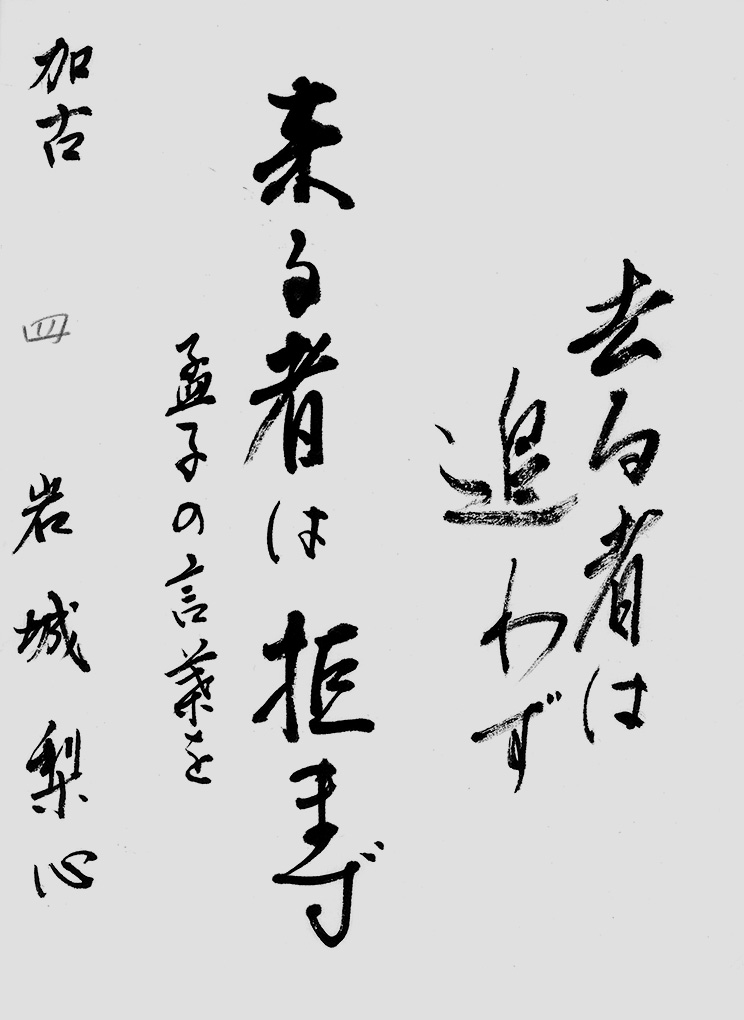 去る者は
追わず
来る者は拒まず
孟子の言葉を
加古 四 岩城梨心